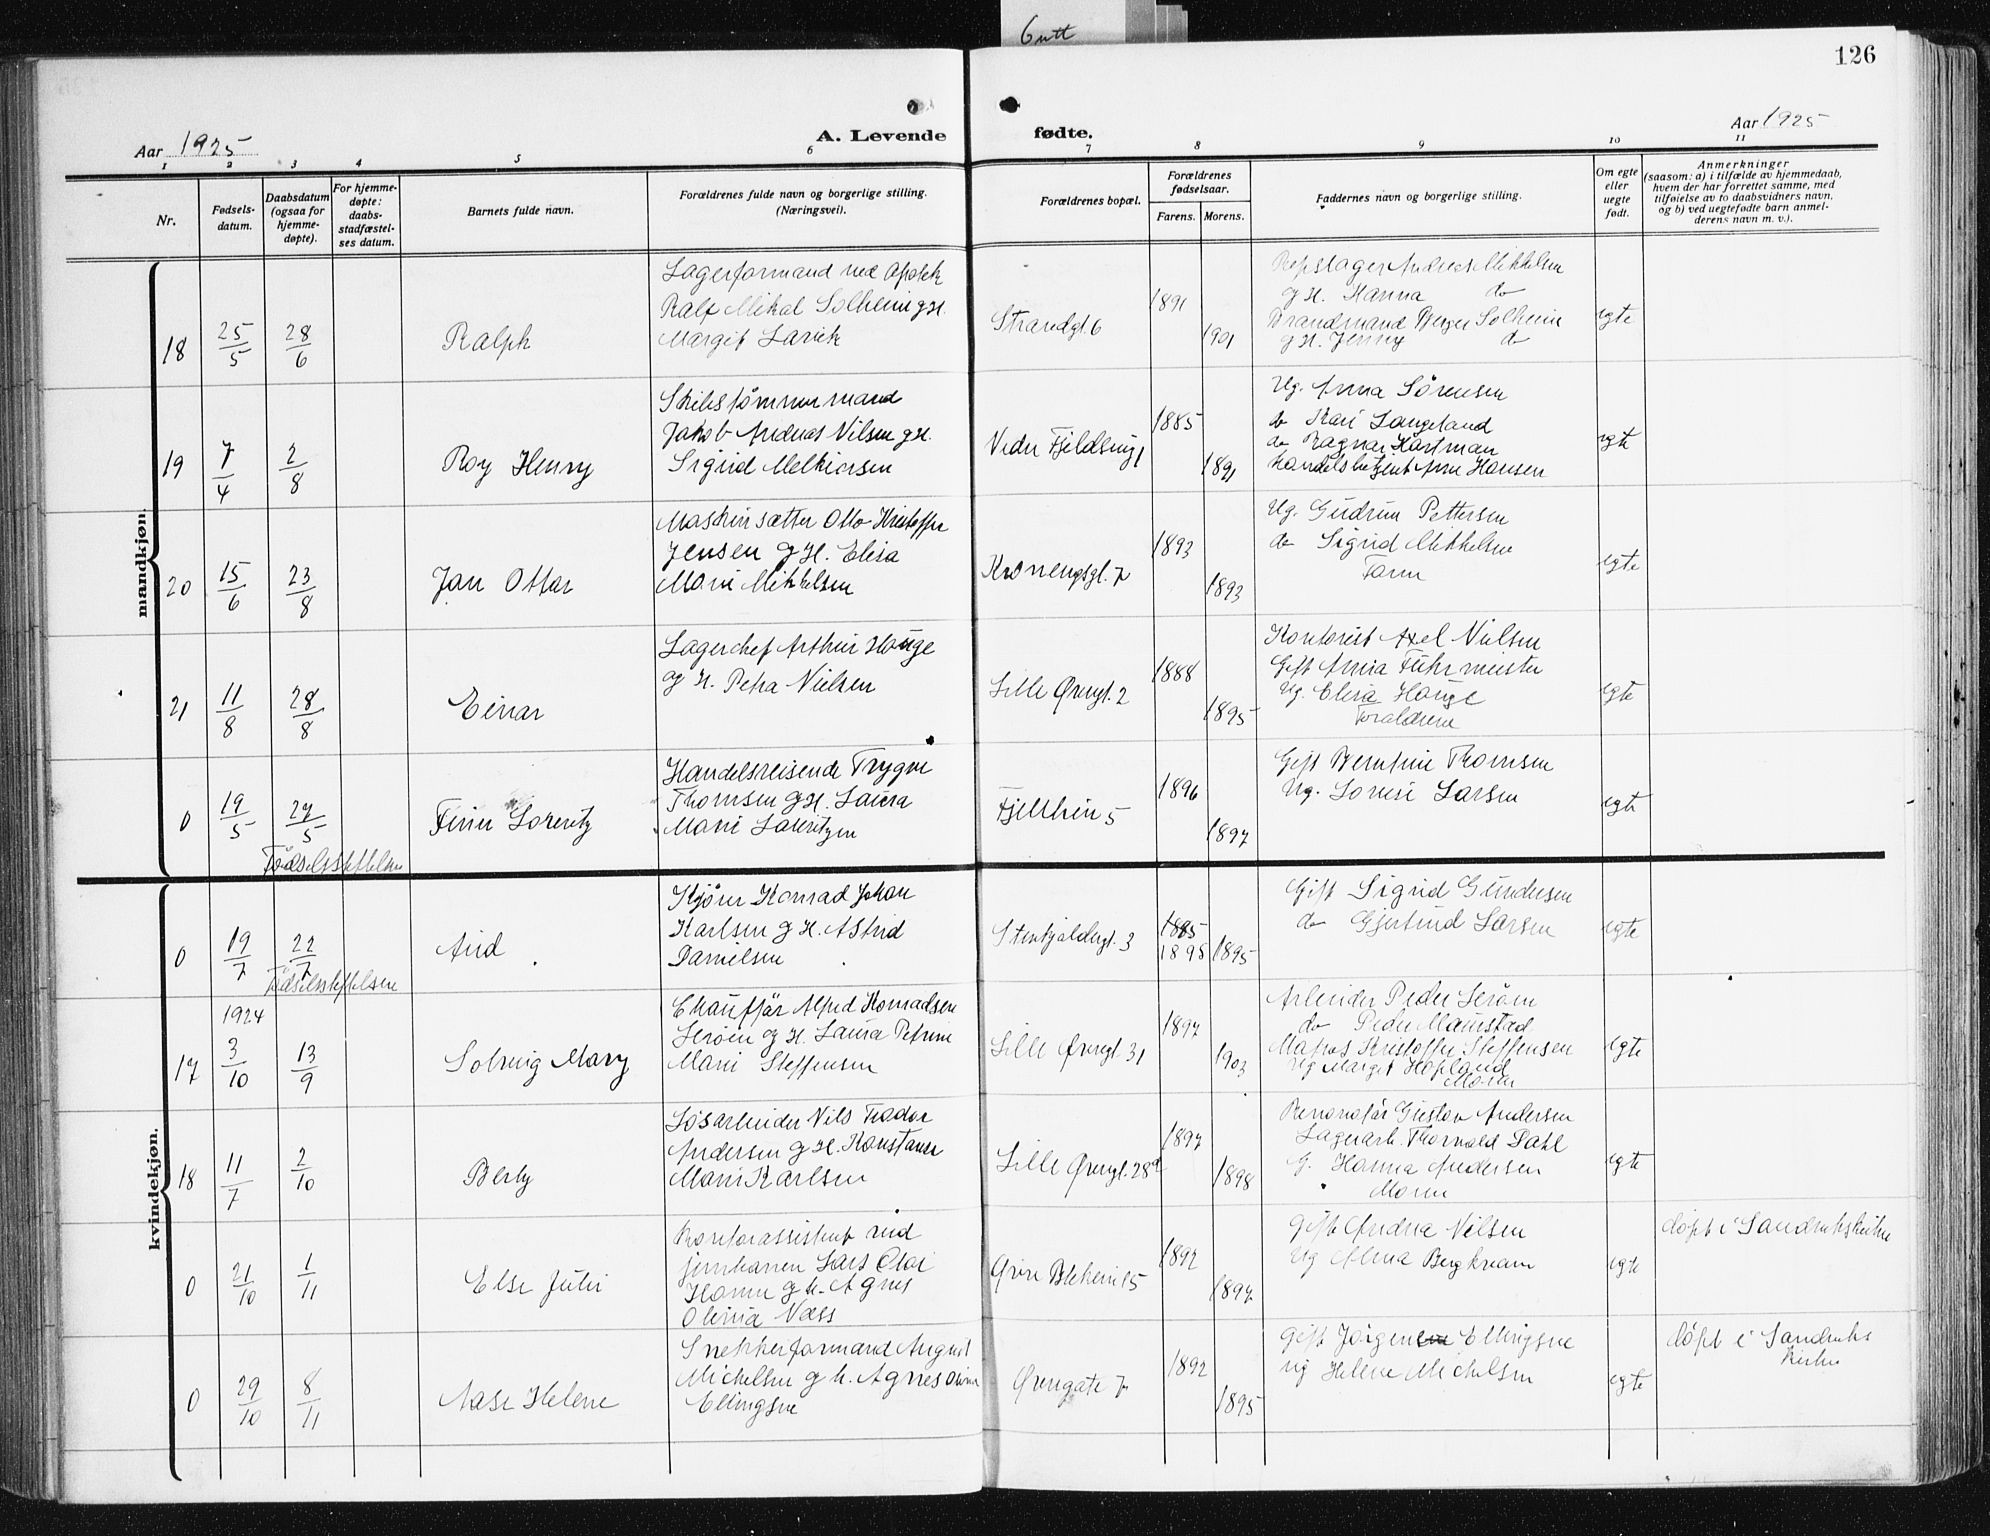 6 utt
126
Aar 1925
A. Levende fødte.
Aar 1925
1 2 3 4 5 6 7 8 9 10 11
Nr.
Fødsels-
datum.
Daabsdatum
(ogsaa for
hjemme-
døpte).
For hjemme-
døpte:
daabs-
stadfæstel-
ses datum.
Barnets fulde navn.
Forældrenes fulde navn og borgerlige stilling.
(Næringsvei).
Forældrenes bopæl.
Forældrenes
fødselsaar.
Farens. Morens.
Faddernes navn og borgerlige stilling.
Om egte
eller
uegte
født.
Anmerkninger
(saasom: a) i tilfælde av hjemmedaab,
hvem der har forrettet samme, med
tilføielse av to daabsvidners navn,
og b) ved uegtefødte barn anmel-
derens navn m. v.).
mandkjøn.
18 25/5 28/6 Ralph
Lagerformand ved Apotek
Ralf Mikal Solheim g H.
Margit Larick
Strandgt. 6
1891
1901
Repslager Andreas Mikkelsen
g H. Hanna do
Brandmand Berger Solheim
g H. Jenny do
egte
19 7/4 2/8 Roy Henry
Skibstømmermand
Jakob Andreas Nilsen g H.
Sigrid Melkiorsen
Nedre Fjeldsmug 1
1885
1891
Ug. Anna Sørensen
do Kari Langeland
do Ragnar Hartman
Handelsbetjent Arne Hansen
egte
20 15/6 23/8 Jan Ottar
Maskinsætter Otto Kristoffer
Jensen g H. Elisa
Marie Mikkelsen
Kronengsgt. 7
1893
1893
Ug. Gudrun Pettersen
do Sigrid Mikkelsen
Faren
egte
21 11/8 28/8 Einar
Lagerchef Arthur Hauge
og H. Petra Nielsen
Lille Øvregt. 2
1888
1895
Kontorist Axel Nielsen
Gift Anna Fuhrmeister
Ug. Elisa Hauge
Forældrene
egte
0 19/5 27/5 Finn Lorentz
Fødselsskftelsen
Handelsreisende Trygve
Thomsen g H. Laura
Marie Lauritzen
Fjellhein 5
1896
1897
Gift Berntine Thomsen
Ug. Louise Larsen
egte
kvindekjøn.
0 19/7 22/7 Aud
Fødselsskftelsen
Kjører Konrad Johan
Karlsen g H. Astrid
Danielsen
Stenkjældergt. 3
1885
1895 1895
Gift Sigrid Gundersen
do Gjertrud Larsen
egte
1924
17 3/10 13/9 Solveig Mary
Chauffør Alfred Konradsen
Herøen og H. Laura Petrine
Marie Steffensen
Lille Øvregt. 31
1897
1903
Arbeider Peder Herøen
do Peder Maurstad
Matros Kristoffer Steffensen
Ug Margit Hopland
Moren
egte
18 11/7 2/10 Berly
Løsarbeider Nils Teodor
Andersen g H. Konstance
Marie Karlsen
Lille Øvregt. 28a
1897
1898
Renovatør Gustav Andersen
Lagerarb. Thorvald Dahl
G. Hanna Andersen
Moren
egte
0 21/10 1/11 Else Julie
Kontorassistent ved
jernbanen Lars Olai
Hamre g h. Agnes
Olivia Næss
Øvre Blekevei 5
1892
1897
Gift Andrea Nilsen
Ug Alma Bergkream
egte
døpt i Sandvikskirken
0 29/10 8/11 Aase Helene
Snekkerformand August
Michelsen g h. Agnes Divina
Ellingsen
Øvregate 7
1892
1895
Gift Jørgen Ellingsen
ug Helene Michelsen
egte
døpt i Sandviks
kirke